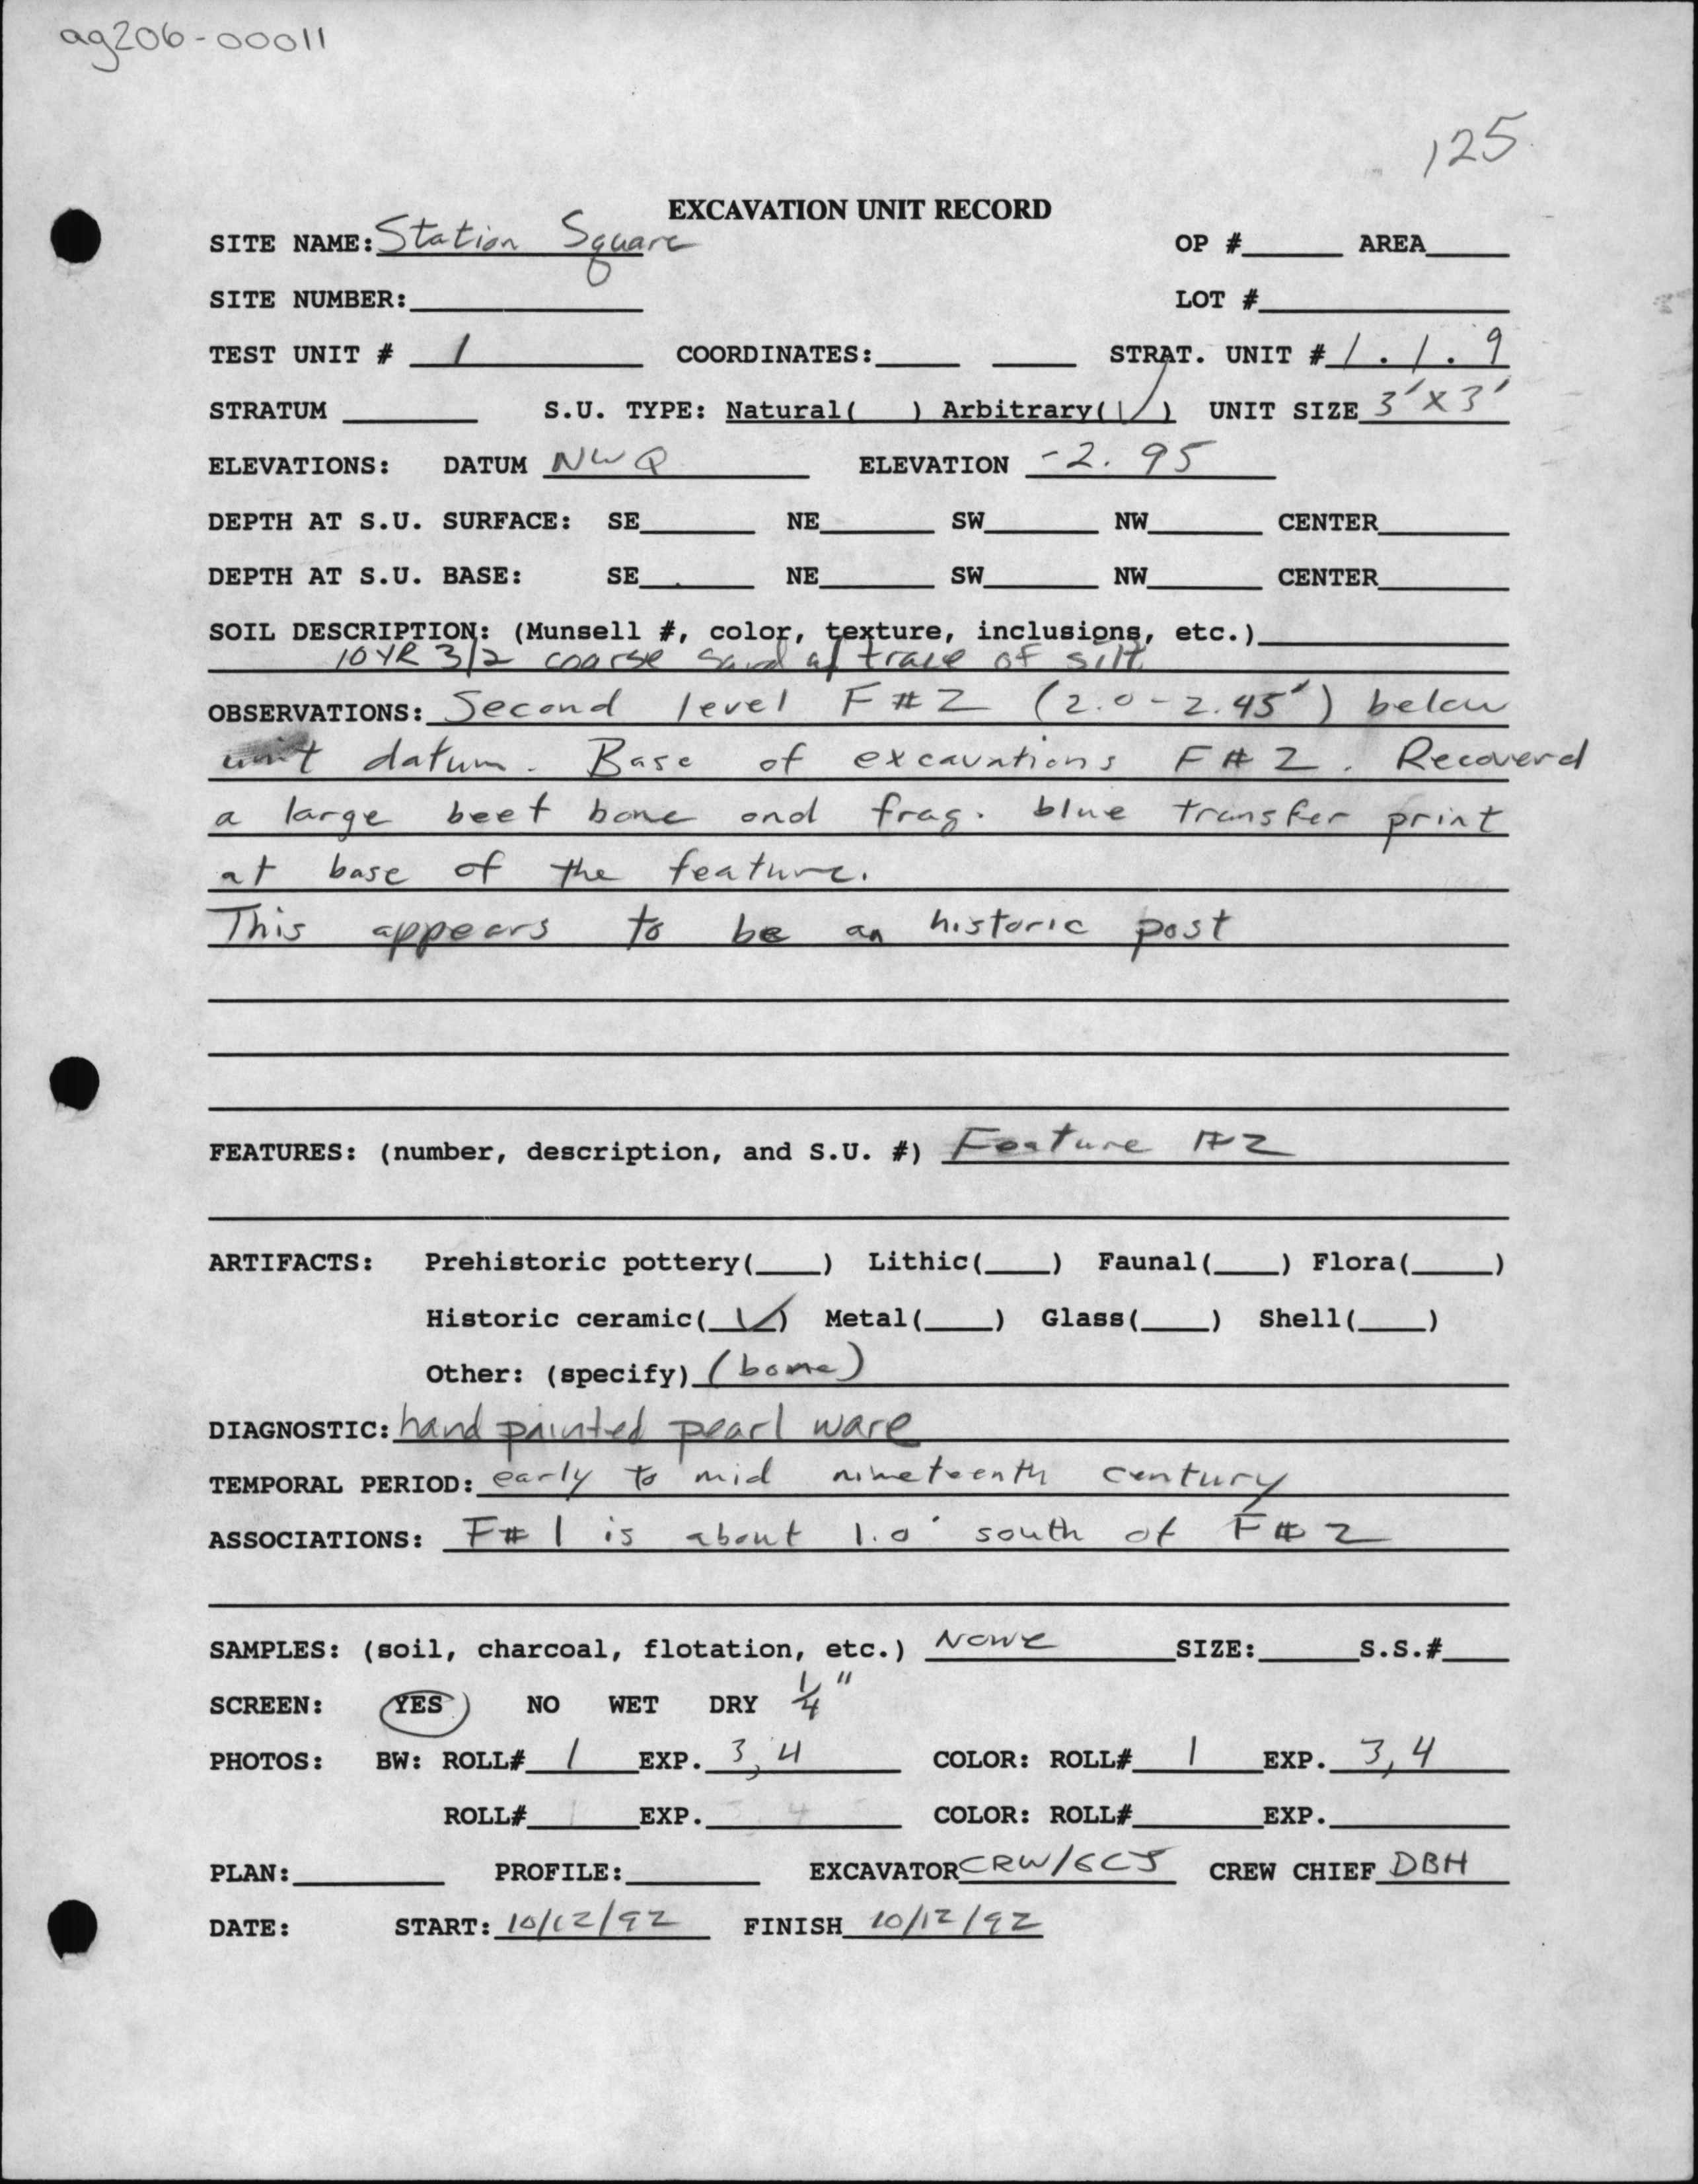 ag206-00011
125
EXCAVATION UNIT RECORD
SITE NAME: Station Square OP #______ AREA_____
SITE NUMBER:______________ LOT #_______________
TEST UNIT # 1 COORDINATES:_____ _____ STRAT. UNIT # 1.1.9
STRATUM ________ S.U. TYPE: Natural( ) Arbitrary(✓) UNIT SIZE 3'x3'
ELEVATIONS: DATUM NWQ ELEVATION -2.95
DEPTH AT S.U. SURFACE: SE_______ NE_______ SW_______ NW_______ CENTER________
DEPTH AT S.U. BASE: SE_______ NE_______ SW_______ NW_______ CENTER________
SOIL DESCRIPTION: (Munsell #, color, texture, inclusions, etc.)
10YR 3/2 coarse sand w/ trace of silt
OBSERVATIONS: Second level F#2 (2.0-2.45') below
unit datum. Base of excavations F#2. Recoverd
a large beef bone and frag. blue transfer print
at base of the feature.
This appears to be an historic post
FEATURES: (number, description, and S.U. #) Feature #2
ARTIFACTS: Prehistoric pottery(____) Lithic(____) Faunal(____) Flora(_____)
Historic ceramic(✓) Metal(____) Glass(____) Shell(____)
Other: (specify) (bone)
DIAGNOSTIC: hand painted pearl ware
TEMPORAL PERIOD: early to mid nineteenth century
ASSOCIATIONS: F#1 is about 1.0' south of F#2
SAMPLES: (soil, charcoal, flotation, etc.) None SIZE:______S.S.#____
SCREEN: YES NO WET DRY 1/4"
PHOTOS: BW: ROLL# 1 EXP. 3,4 COLOR: ROLL# 1 EXP. 3,4
ROLL#______EXP.____________ COLOR: ROLL#________EXP.___________
PLAN:_________ PROFILE:________ EXCAVATOR CRW/GCS CREW CHIEF DBH
DATE: START: 10/12/92 FINISH 10/12/92